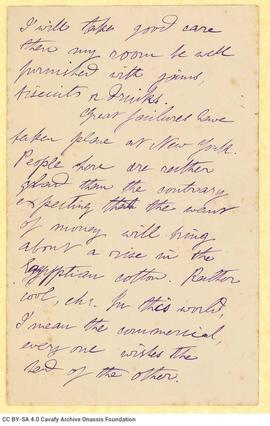 I will take good care
then my room be well
furnished with jams,
biscuits & drinks.
Great failures have
taken place at New York.
People here are neither
glad than the contrary
expecting that the want
of money will bring
about a rise in the
Egyptian cotton. Rather
cool, eh? In this world,
I mean the commercial,
every one wishes the
bad of the other.
CC BY-SA 4.0 Cavafy Archive Onassis Foundation